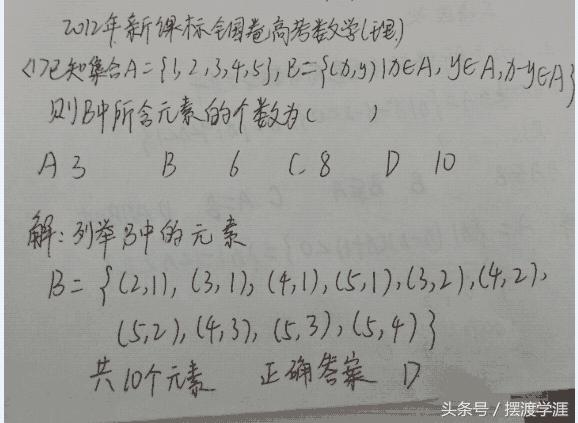 2012年新课标全国卷高考数学(理)
<1>已知集合A={1,2,3,4,5},B={(x,y)|x∈A,y∈A,x-y∈A}
则B中所含元素的个数为( )
A 3 B 6 C. 8 D 10
解:列举B中的元素
B={(2,1),(3,1),(4,1),(5,1),(3,2),(4,2),
(5,2),(4,3),(5,3),(5,4)}
共10个元素 正确答案 D
头条号/摆渡学涯